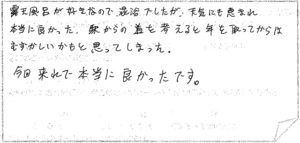 露天風呂が好きなので最高でしたが、天気にも恵まれ
本当に良かった。駅からの道を考えると年を取ってからは
むずかしいかもと思ってしまった。
今回来れて本当に良かったです。